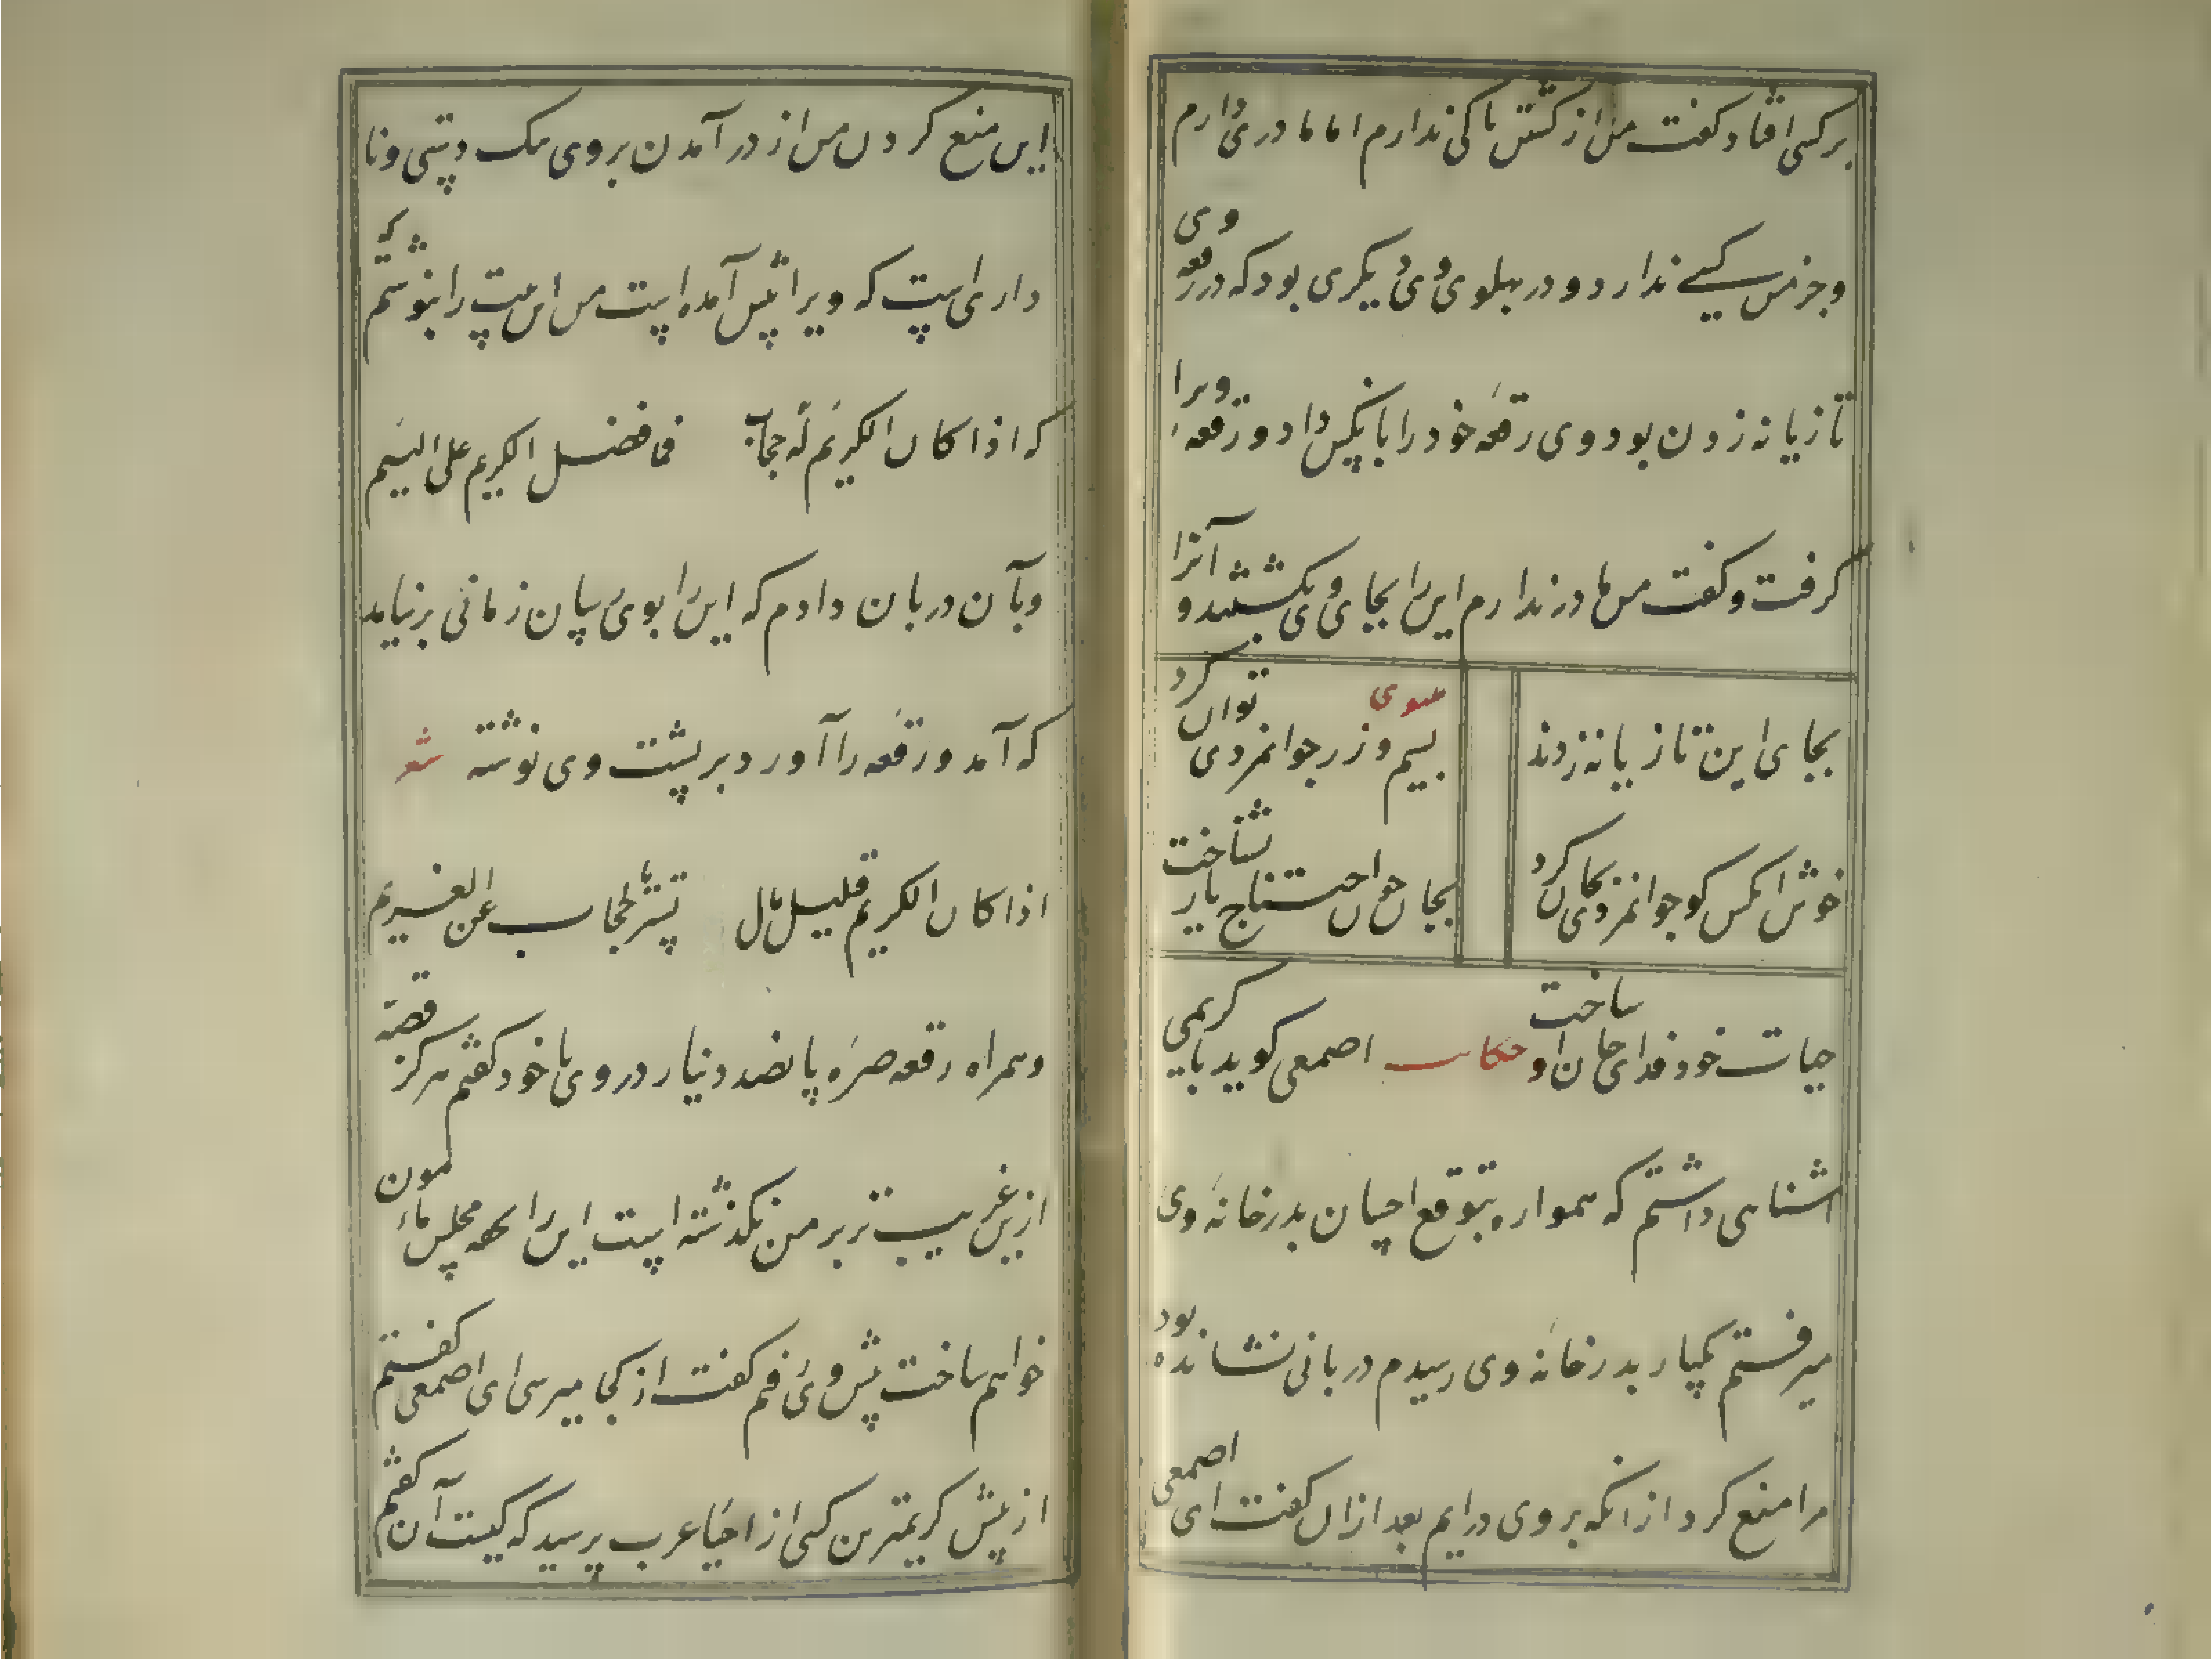 برکسی افتاد گفت من از کشتن باکی ندارم اما مادری دارم
و جز من کسے ندارد و در پهلوی وی دیگری بود که در رقعه وی
تازیانه زدن بود وی رقعهٔ خود را بآنکس داد و رقعه ویرا
گرفت و گفت من مادر ندارم این را بجای وی بکشتند و آنرا
بجای این تازیانه زدند
مثنوی
بسیم و زر جوانمردی توان کرد
خوش آنکس کو جوانمردی بجان کرد
بجان چون احتیاج یار بشناخت
حیات خود فدای جان او ساخت حکایت اصمعی گوید با کریمی
اشنایی داشتم که همواره بتوقع احسان بدر خانهٔ وی
میرفتم یکبار بدر خانهٔ وی رسیدم دربانی نشانده بود
مرا منع کرد از انکه بر وی درایم بعد ازان گفت ای اصمعی
این منع کردن من از در آمدن بروی یک دستی و نا
داری است که ویرا پیش آمده است من این بیت را بنوشتم که
که اذا کان الکریم له حجاب فما فضل الکریم علی اللئیم
و بآن دربان دادم که این را بوی رسان زمانی برنیامد
که آمد و رقعه را آورد بر پشت وی نوشته شعر
اذا کان الکریم قلیل مال تستر بالحجاب عن الغریم
و همراه رقعه صرهٔ پانصد دینار در وی با خود گفتم هرگز قصهٔ
ازین غریب تر بر من نگذشته است این را تحفه مجلس مأمون
خواهم ساخت پیش وی رفتم گفت از کجا میرسی ای اصمعی گفتم
از پیش کریمترین کسی از احیا عرب پرسید که کیست آن گفتم